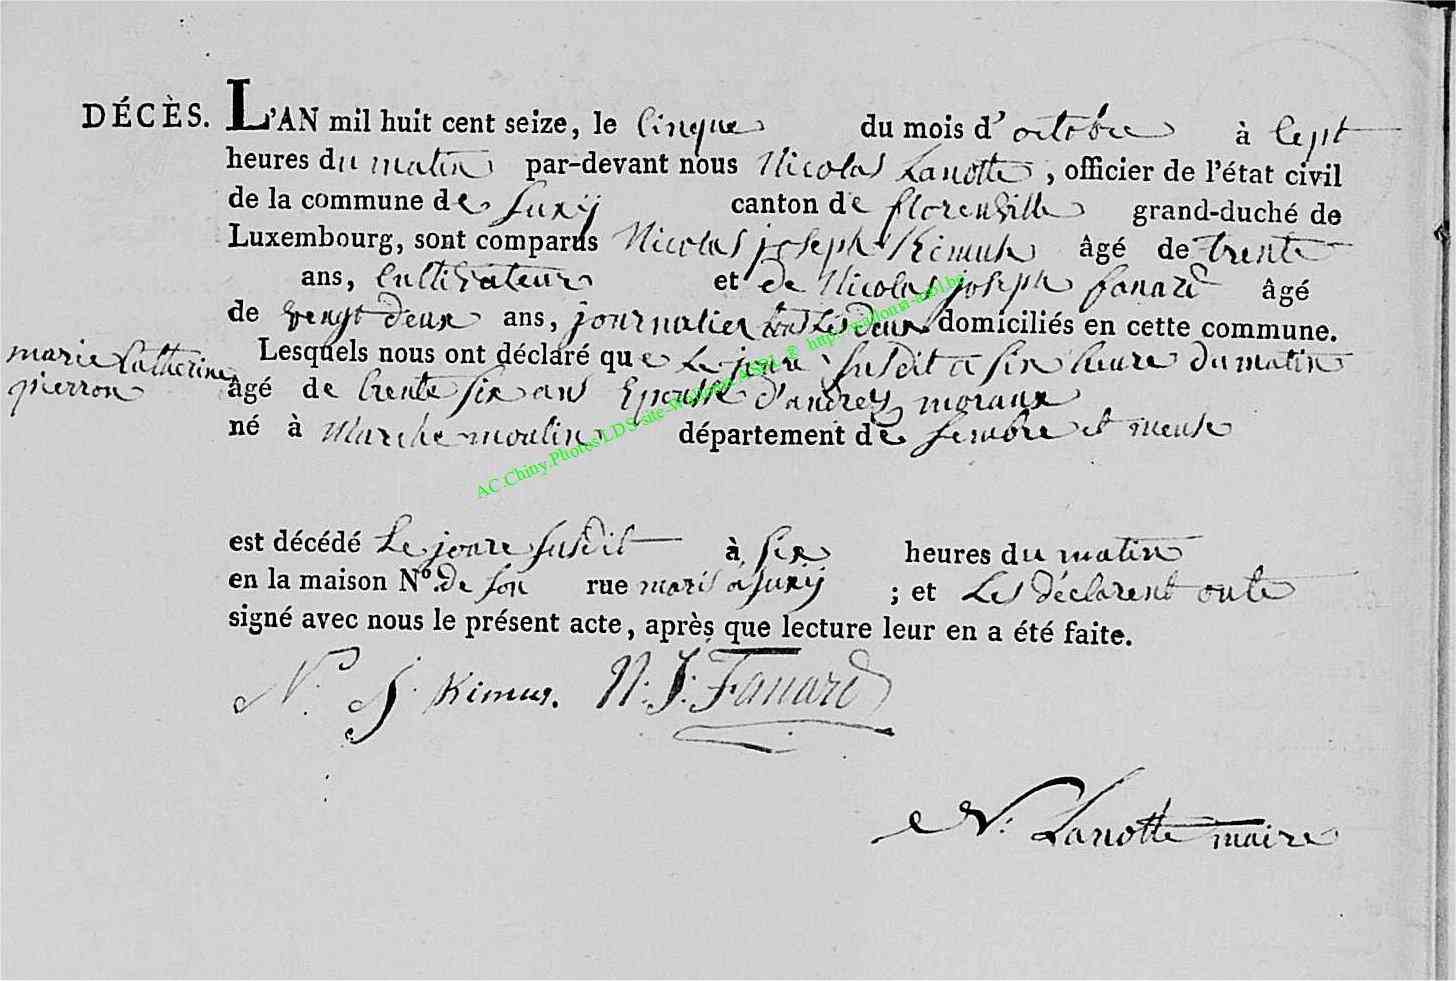 DÉCÈS. L'AN mil huit cent seize, le cinque du mois d'octobre à sept
heures du matin par-devant nous Nicolas Lanotte, officier de l'état civil
de la commune de Suxÿ canton de florenville grand-duché de
Luxembourg, sont comparus Nicolas joseph Kimus âgé de trente
ans, cultivateur et de Nicolas joseph fanard âgé
de vengt deux ans, journalier tous les deux domiciliés en cette commune.
Lesquels nous ont déclaré que Le joure susdit a six heure du matin
marie Catherine
pierron
âgé de trente six ans Epousse d'andrey moraux
né à Marche moulin département de sembre et meuse
AC.Chiny.Photos LDS site-Wallonia ASBL & http://wallonia-asbl.be
est décédé Le joure susdit à six heures du matin
en la maison Nº. de son rue maris a suxÿ ; et Les déclarent onte
signé avec nous le présent acte, après que lecture leur en a été faite.
N. J. Kimus. N. J. Fanard
N. Lanotte maire